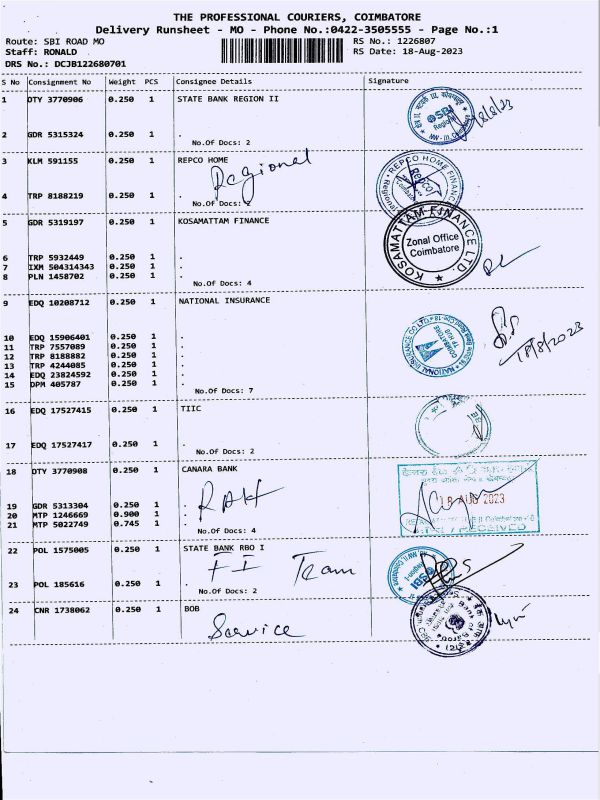 THE PROFESSIONAL COURIERS, COIMBATORE
Delivery Runsheet - MO - Phone No.:0422-3505555 - Page No.:1
Route: SBI ROAD MO RS No.: 1226807
Staff: RONALD RS Date: 18-Aug-2023
DRS No.: DCJB122680701
S No Consignment No Weight PCS Consignee Details Signature
1 DTY 3770906 0.250 1 STATE BANK REGION II
SBI
18/8/23
2 GDR 5315324 0.250 1 .
No.Of Docs: 2
3 KLM 591155 0.250 1 REPCO HOME
Regional
REPCO HOME FINANCE
4 TRP 8188219 0.250 1 .
No.Of Docs: 2
5 GDR 5319197 0.250 1 KOSAMATTAM FINANCE
KOSAMATTAM FINANCE LTD.
Zonal Office
Coimbatore
6 TRP 5932449 0.250 1 .
7 IXM 504314343 0.250 1 .
8 PLN 1458702 0.250 1 .
No.Of Docs: 4
9 EDQ 10208712 0.250 1 NATIONAL INSURANCE
NATIONAL INSURANCE CO LTD.
COIMBATORE
18/8/2023
10 EDQ 15906401 0.250 1 .
11 TRP 7557089 0.250 1 .
12 TRP 8188882 0.250 1 .
13 TRP 4244085 0.250 1 .
14 EDQ 23824592 0.250 1 .
15 DPM 405787 0.250 1 .
No.Of Docs: 7
16 EDQ 17527415 0.250 1 TIIC
17 EDQ 17527417 0.250 1 .
No.Of Docs: 2
18 DTY 3770908 0.250 1 CANARA BANK
18 AUG 2023
RECEIVED
19 GDR 5313304 0.250 1 .
20 MTP 1246669 0.900 1 .
21 MTP 5022749 0.745 1 .
No.Of Docs: 4
22 POL 1575005 0.250 1 STATE BANK RBO I
FI Team
SBI
23 POL 185616 0.250 1 .
No.Of Docs: 2
24 CNR 1738062 0.250 1 BOB
Service